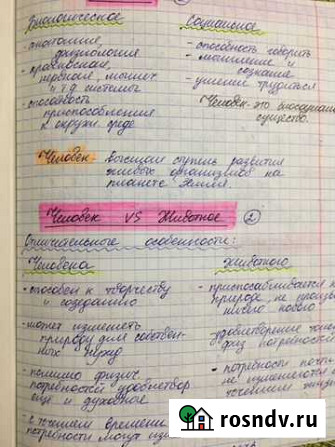 Биологическое
Социальное
- анатомия,
физиология
- кровеносная,
нервная, мышеч.
и т.д. системы
- способность
приспособления
к окруж. среде
- способность говорить
- мышление и
сознание
- умение трудиться
Человек - это биосоциальн
существо.
Человек - высшая ступень развития
живых организмов на
планете Земля.
Человек VS Животное 2
Отличительные особенности:
Человека
Животного
- способен к творчеству
и созданию
- может изменять
природу для собствен-
ных нужд
- помимо физич.
потребностей удовлетвор
ещё и духовное
- с течением времени
потребности могут
- приспосабливается к
природе, не
ничего нового
- удовлетворение
физ. потребностей
- потребности почти
не изменяются в
течении жизни
rosndv.ru